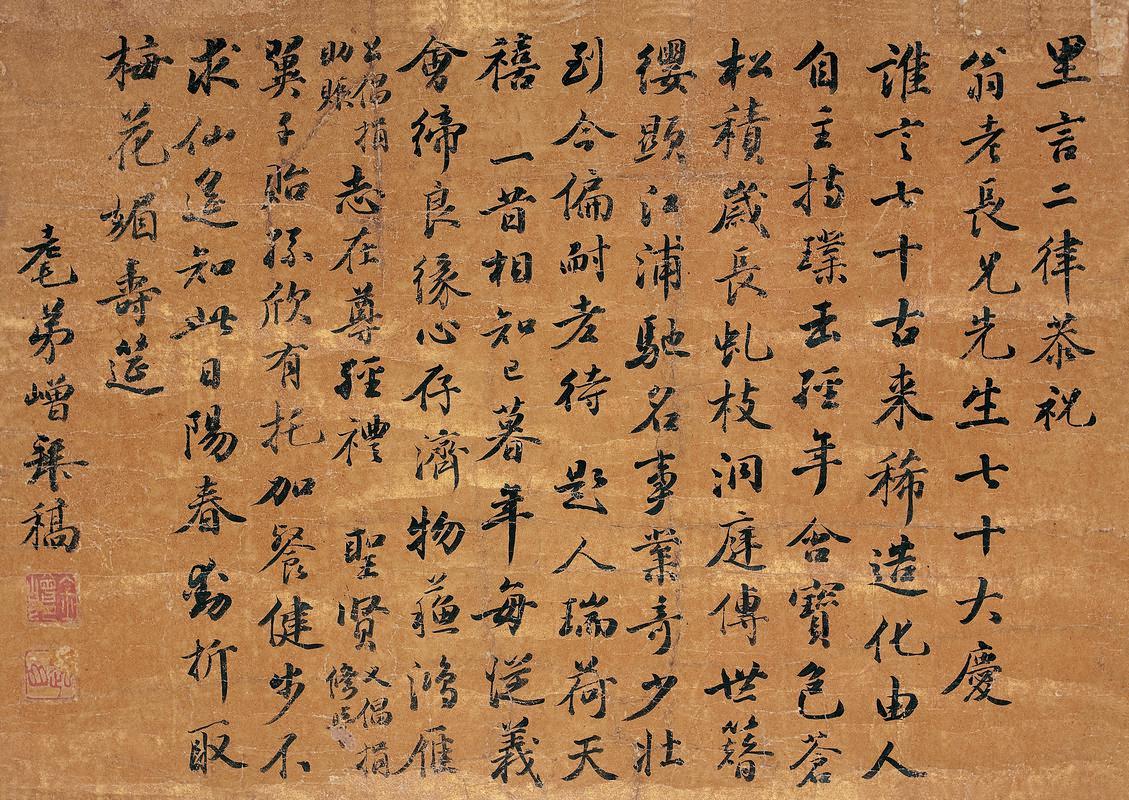 里言二律恭祝
翁老長兄先生七十大慶
誰言七十古来稀造化由人
自主持璞玉經年含寶色蒼
松積歲長虬枝洞庭傳世簪
纓顯江浦馳名事業奇少壯
到今偏耐老待題人瑞荷天
禧 一昔相知已暮年每從義
會締良緣心存濟物蘇鴻雁
公倡捐助賑 志在尊經禮 聖賢 又倡捐修
翼子貽孫欣有托加餐健步不
求仙遥知此日陽春動折取
梅花媚壽筵
耄弟嶒稿